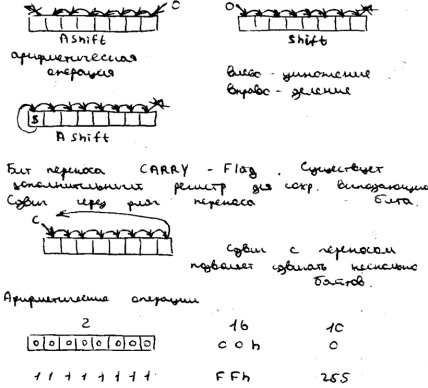 0 0
A Shift Shift
арифметическая операция
влево - умножение
вправо - деление
S
A Shift
Бит переноса CARRY - Flag. Существует
дополнительный регистр для сохр. выпадающего бита.
Сдвиг через флаг переноса
C
Сдвиг с переносом
позволяет сдвигать несколько
байтов.
Арифметические операции
2 16 10
0 0 0 0 0 0 0 0 00h 0
1 1 1 1 1 1 1 1 FFh 255